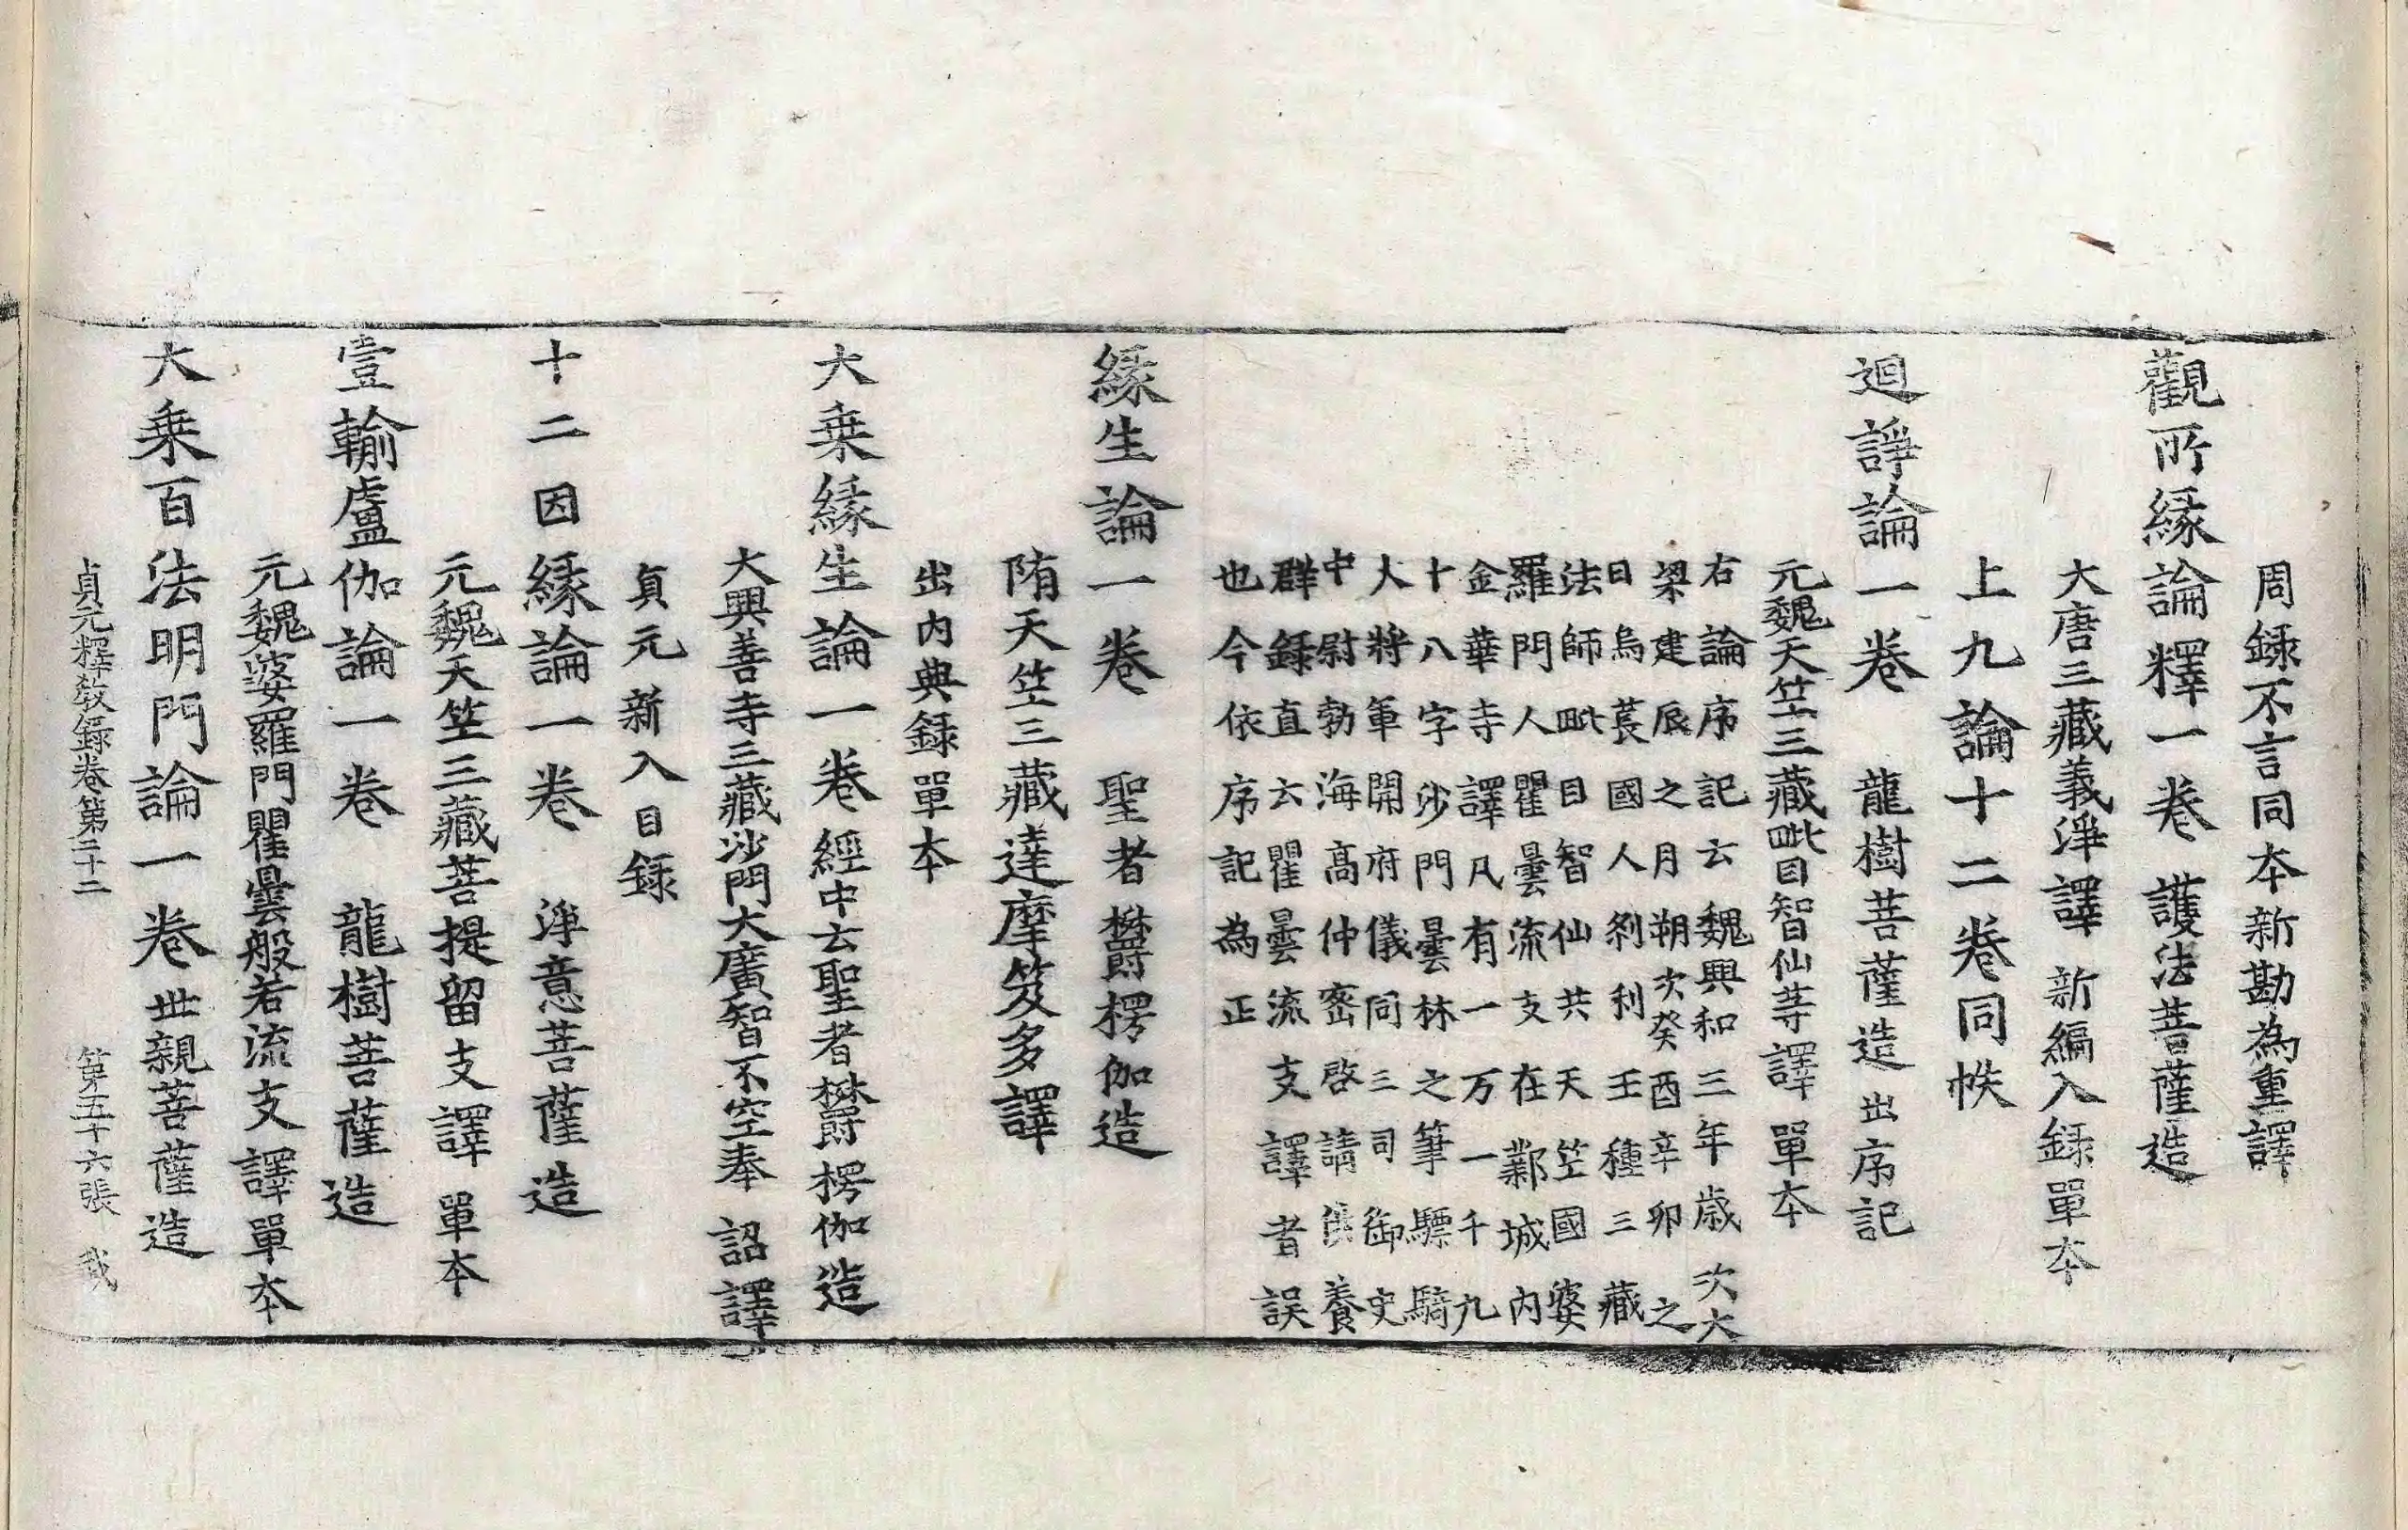 周録不言同本新勘為重譯
觀所縁論釋一卷 護法菩薩造
大唐三藏義淨譯 新編入録單本
上九論十二卷同帙
迴諍論一卷 龍樹菩薩造 出序記
元魏天竺三藏毗目智仙等譯 單本
右論序記云魏興和三年歳次大
梁建辰之月朔次癸酉辛卯之
日烏萇國人刹利王種三藏
法師毗目智仙共天竺國婆
羅門人瞿曇流支在鄴城內
金華寺譯凡有一万一千九
十八字沙門曇林之筆驃騎
大將軍開府儀同三司御史
中尉勃海高仲密啓請供養
群録直云瞿曇流支譯者誤
也今依序記為正
縁生論一卷 聖者欝楞伽造
隋天竺三藏達摩笈多譯
出內典録單本
大乗縁生論一卷 經中云聖者欝楞伽造
大興善寺三藏沙門大廣智不空奉 詔譯
貞元新入目録
十二因縁論一卷 淨意菩薩造
元魏天竺三藏菩提留支譯 單本
壹輸盧伽論一卷 龍樹菩薩造
元魏婆羅門瞿曇般若流支譯單本
大乗百法明門論一卷 世親菩薩造
貞元釋教録卷第二十二 第五十六張